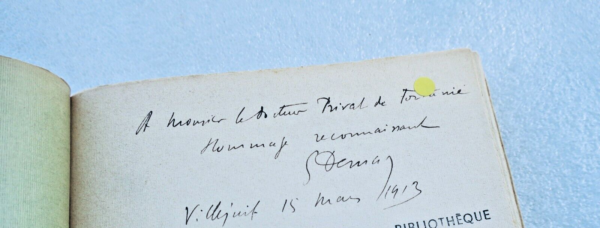 A Monsieur le docteur Prival de
Hommage reconnaissant
Villejuif 15 mars 1913
BIBLIOTHÈQUE